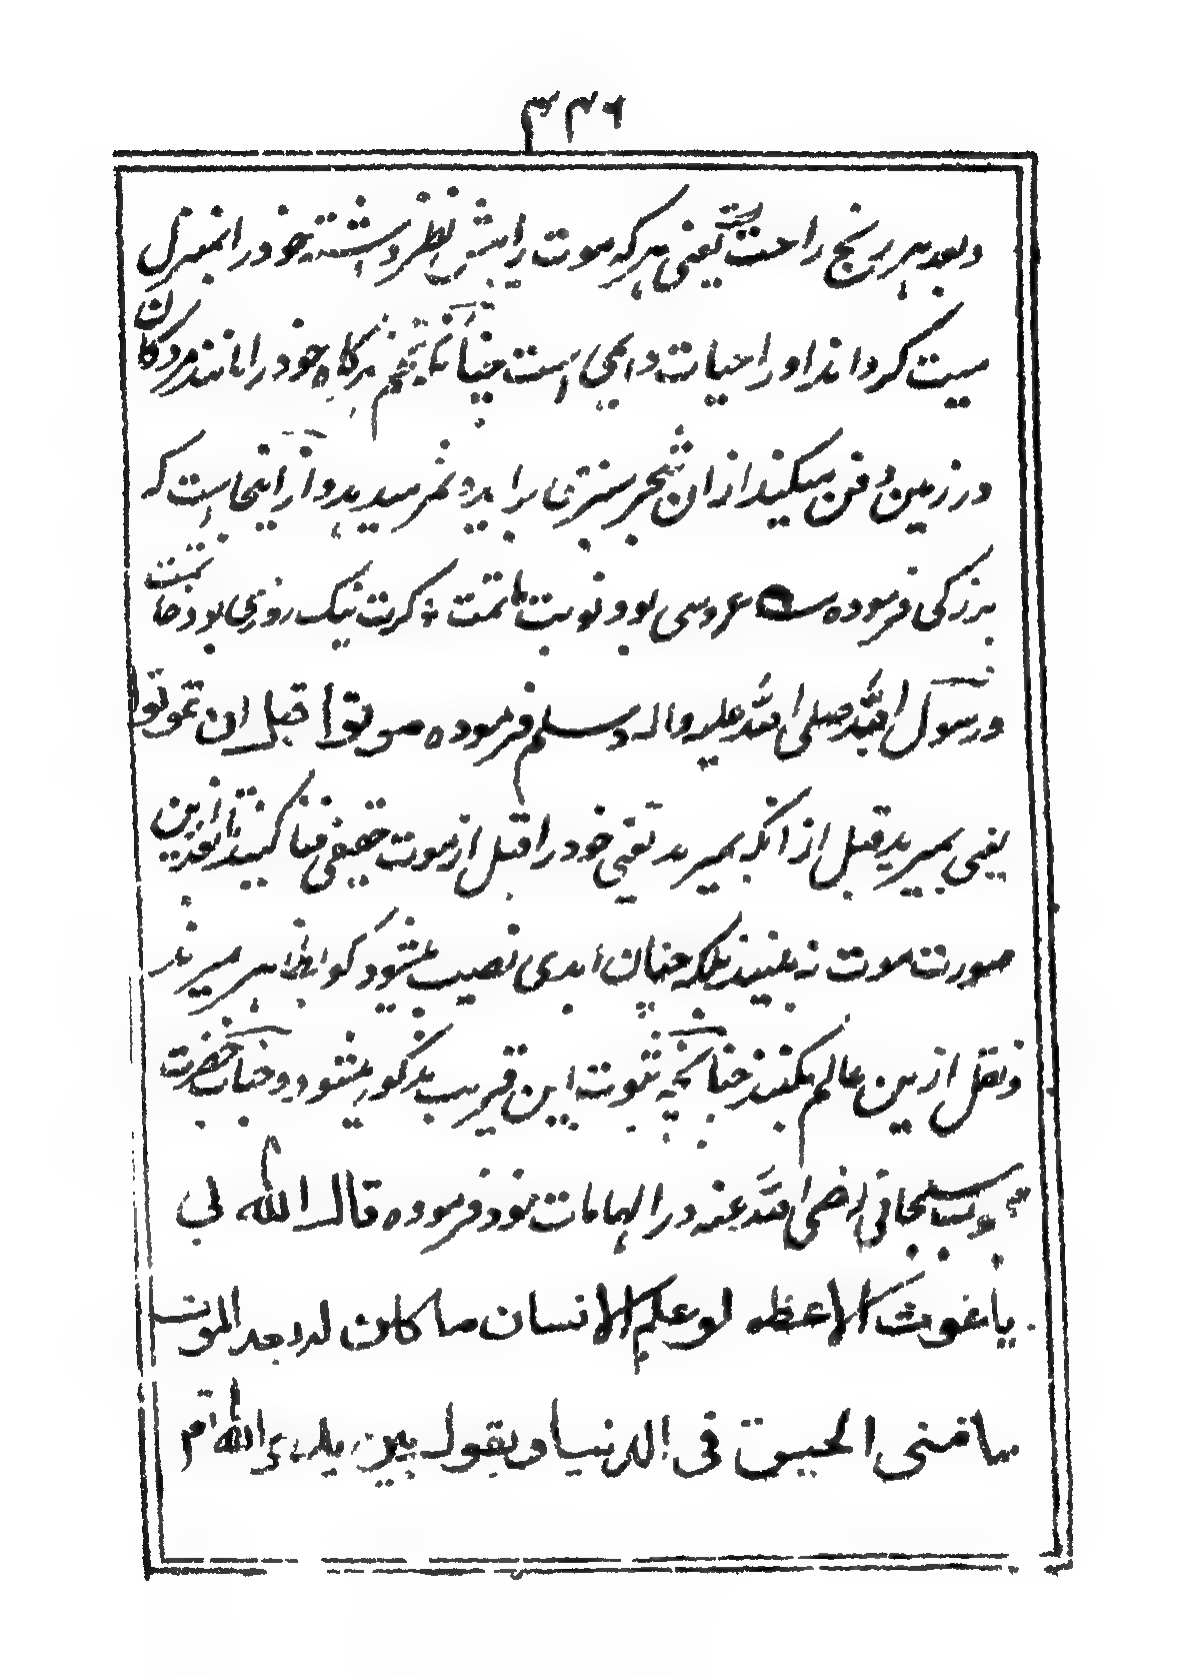 ۳۳۶
و بعد هر رنج راحت است یعنی هر که موت را پیش نظر داشته خود را بمنزل
میت گرداند او را حیات دایمی است چنانکه تخم هرگاه خود را مانند مردگان
در زمین دفن میکند ازان شجر سبزی براید و ثمر میدهد و ازینجاست که
بزرگی فرموده عروسی بود نوبت ماتمت * گرت نیک روزی بود خاتمت
و رسول الله صلی الله علیه واله وسلم فرموده موتوا قبل ان تموتوا
یعنی بمیرید قبل از آنکه بمیرید یعنی خود را قبل از موت حقیقی فنا کنید تا بعد ازین
صورت موت نه بینید بلکه چنان ابدی نصیب میشود که بظاهر میرند
و نقل ازین عالم بکنند چنانچه ثبوت این قریب مذکور میشود و جناب حضرت
محبوب سبحانی رضی الله عنه در الهامات خود فرموده قال الله لی
یا غوث الاعظم لو علم الانسان ما کان له بعد الموت
ما تمنی الحیوة فی الدنیا و یقول بین یدی الله